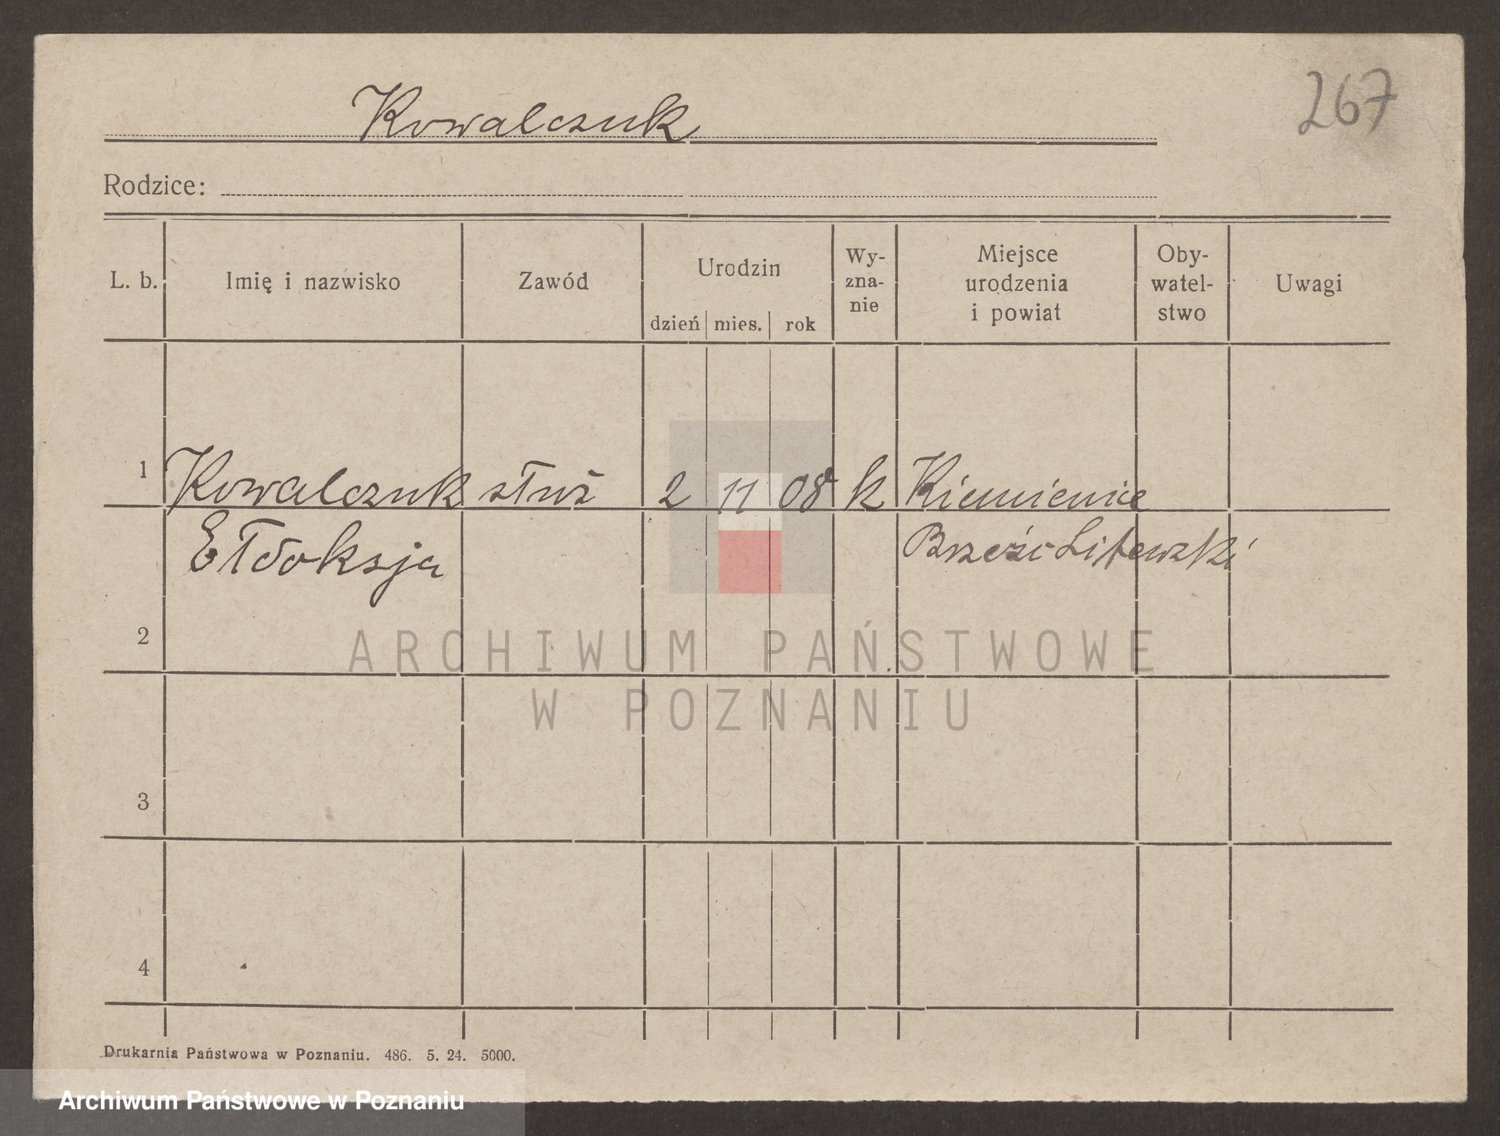 267
Kowalczuk
Rodzice:
L. b. Imię i nazwisko Zawód Urodzin dzień mies. rok Wy-zna-nie Miejsce urodzenia i powiat Oby-watel-stwo Uwagi
1 Kowalczuk służ 2 11 08 k
Ełdoksja Brześć Litewski
2
3
4
ARCHIWUM PAŃSTWOWE
W POZNANIU
Drukarnia Państwowa w Poznaniu. 486. 5. 24. 5000.
Archiwum Państwowe w Poznaniu